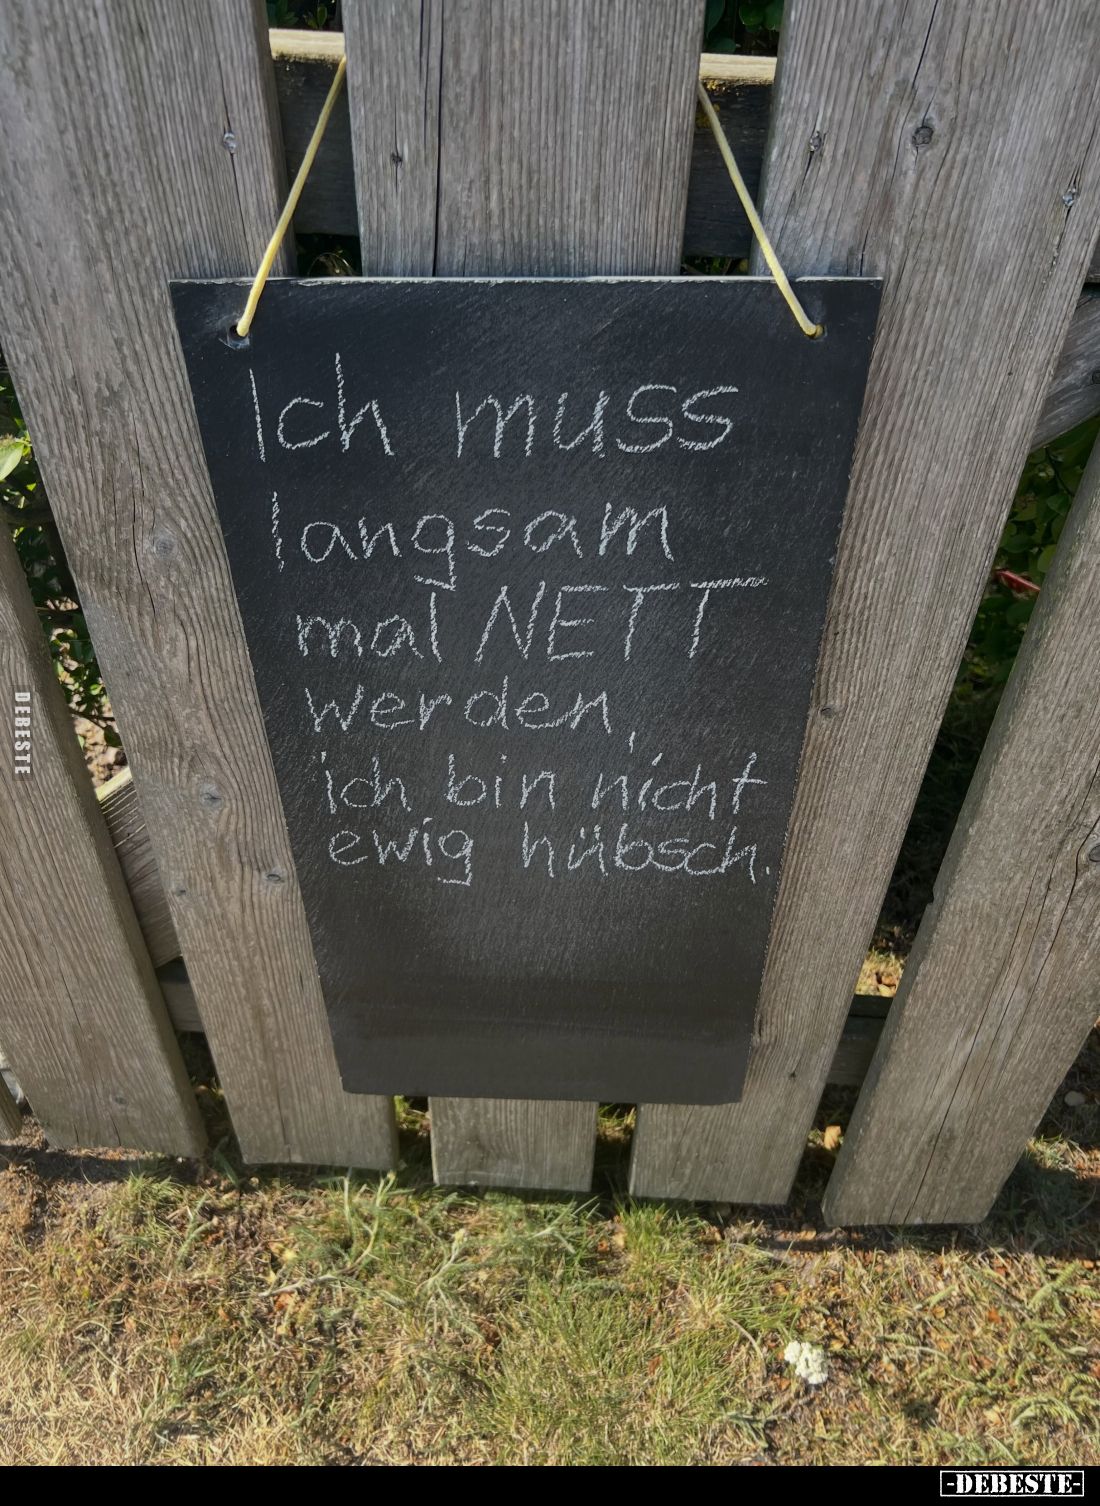 Ich muss
langsam
mal NETT
werden,
ich bin nicht
ewig hübsch.
DEBESTE
-DEBESTE-